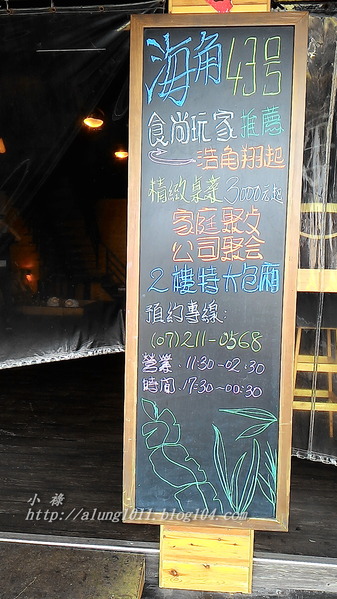 海角43号
食尚玩家推薦
浩角翔起
精緻桌菜3000元起
家庭聚攵
公司聚会
2樓特大包廂
預約專線:
(07)211-0568
營業.11:30-02:30
時間.17:30-00:30
小祿
http://alung1011.blog104.com/